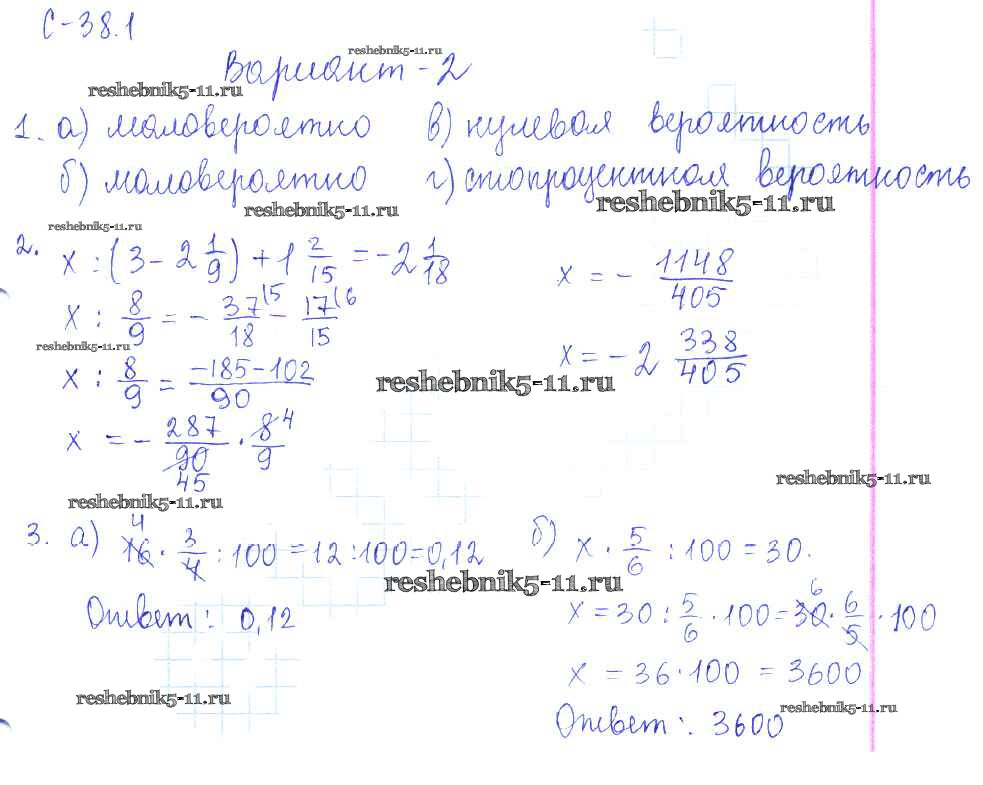 С-38.1
reshebnik5-11.ru
Вариант-2
reshebnik5-11.ru
1. а) маловероятно в) нулевая вероятность
б) маловероятно г) стопроцентная вероятность
reshebnik5-11.ru reshebnik5-11.ru
reshebnik5-11.ru
2. x : (3 - 2 1/9) + 1 2/15 = -2 1/18
x : 8/9 = - 37/18 (5 - 17/15 (6
reshebnik5-11.ru
x : 8/9 = (-185-102)/90
x = - 287/90 · 8/9
45 4
x = - 1148/405
x = -2 338/405
reshebnik5-11.ru
reshebnik5-11.ru
reshebnik5-11.ru
3. а) 16 · 3/4 : 100 = 12 : 100 = 0,12
4
Ответ: 0,12
reshebnik5-11.ru
б) x · 5/6 : 100 = 30.
x = 30 : 5/6 · 100 = 30 · 6/5 · 100
6
x = 36·100 = 3600
Ответ: 3600
reshebnik5-11.ru
reshebnik5-11.ru